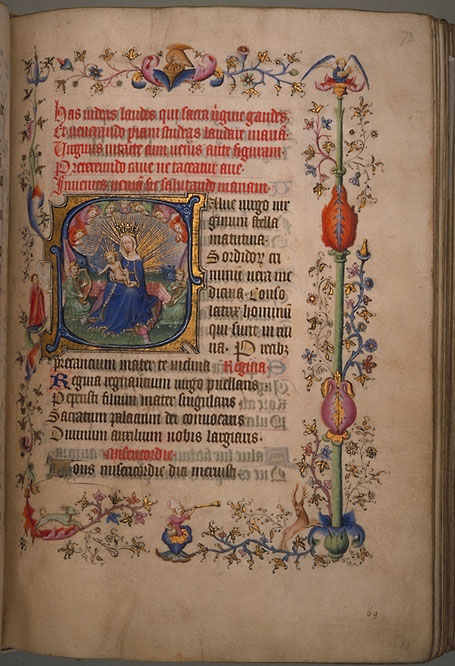 73
Has videas laudes que sacra v̄gine gaudes
Et venerando piam studeas laudare mariā.
Virginis intacte cum veneris ante figuram
Pretereundo cave ne taceatur ave
Invenies veniam sic salutando mariam
Salve virgo vir
ginum stella
matutina
Sordidor cri
minum vera me
dicina. Conso
latrix hominū
qui sunt in rui
na. Precibꝫ
precantium mater te inclina Regina
Regina regnantium virgo puellaris
filium mater singularis
Sacratum palacium dei
Divinum auxilium nobis largiaris.
Misericordie
Fons misericordie dici meruisti
69